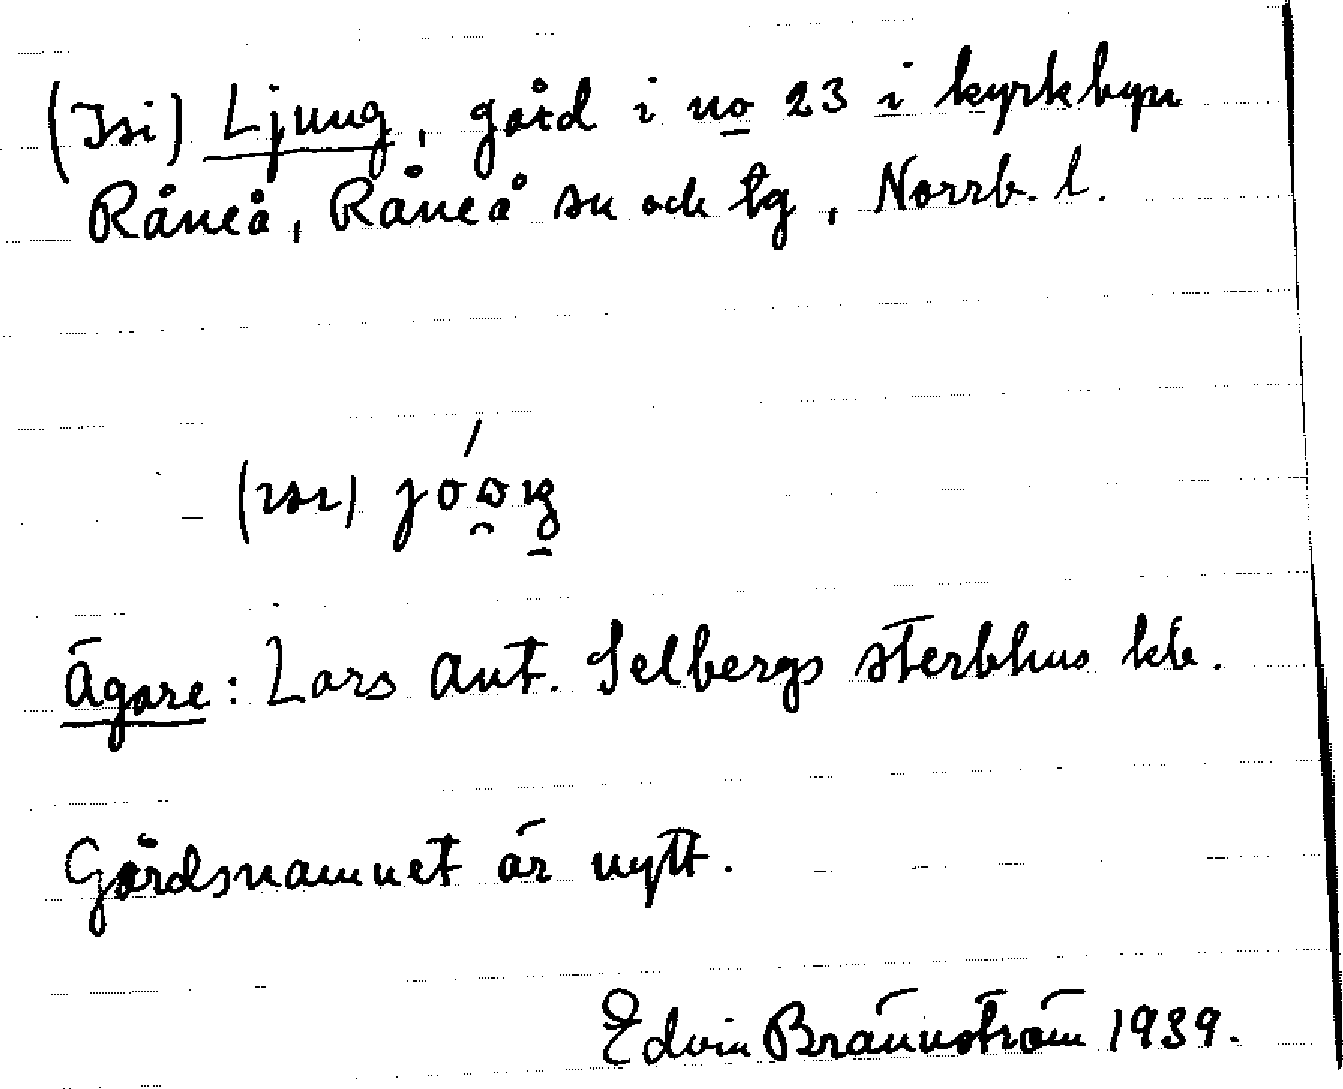 (Isi) Ljung, gård i no 23 i kyrkbyn
Råneå, Råneå sn och tg, Norrb. l.
(ısı)
Ägare: Lars Ant. Selbergs sterbhus kb.
Gårdsnamnet är nytt.
Edvin Brännström 1939.